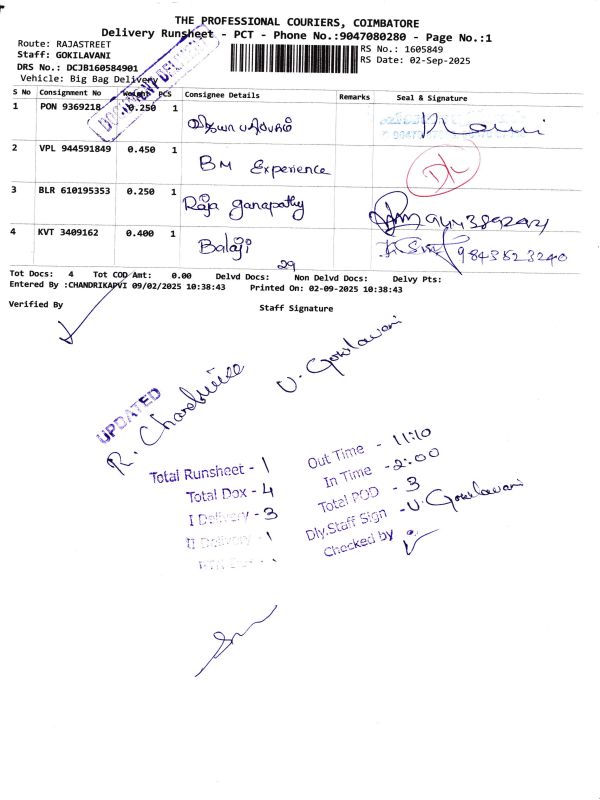 THE PROFESSIONAL COURIERS, COIMBATORE
Delivery Runsheet - PCT - Phone No.:9047080280 - Page No.:1
Route: RAJASTREET
RS No.: 1605849
Staff: GOKILAVANI
RS Date: 02-Sep-2025
DRS No.: DCJB160584901
Vehicle: Big Bag Delivery
DOCUMENT DELIVERY
S No Consignment No Weight PCS Consignee Details Remarks Seal & Signature
1 PON 9369218 0.250 1
2 VPL 944591849 0.450 1 BM Experience D/L
3 BLR 610195353 0.250 1 Raja ganapathy 9443892421
4 KVT 3409162 0.400 1 Balaji 9843523240
29
Tot Docs: 4 Tot COD Amt: 0.00 Delvd Docs: Non Delvd Docs: Delvy Pts:
Entered By :CHANDRIKAPVI 09/02/2025 10:38:43 Printed On: 02-09-2025 10:38:43
Verified By Staff Signature
V. Gokilavani
UPDATED
Total Runsheet - 1
Total Dox - 4
I Delivery - 3
II Delivery - 1
Out Time - 11:10
In Time - 2:00
Total POD - 3
Dly.Staff Sign - V. Gokilavani
Checked by